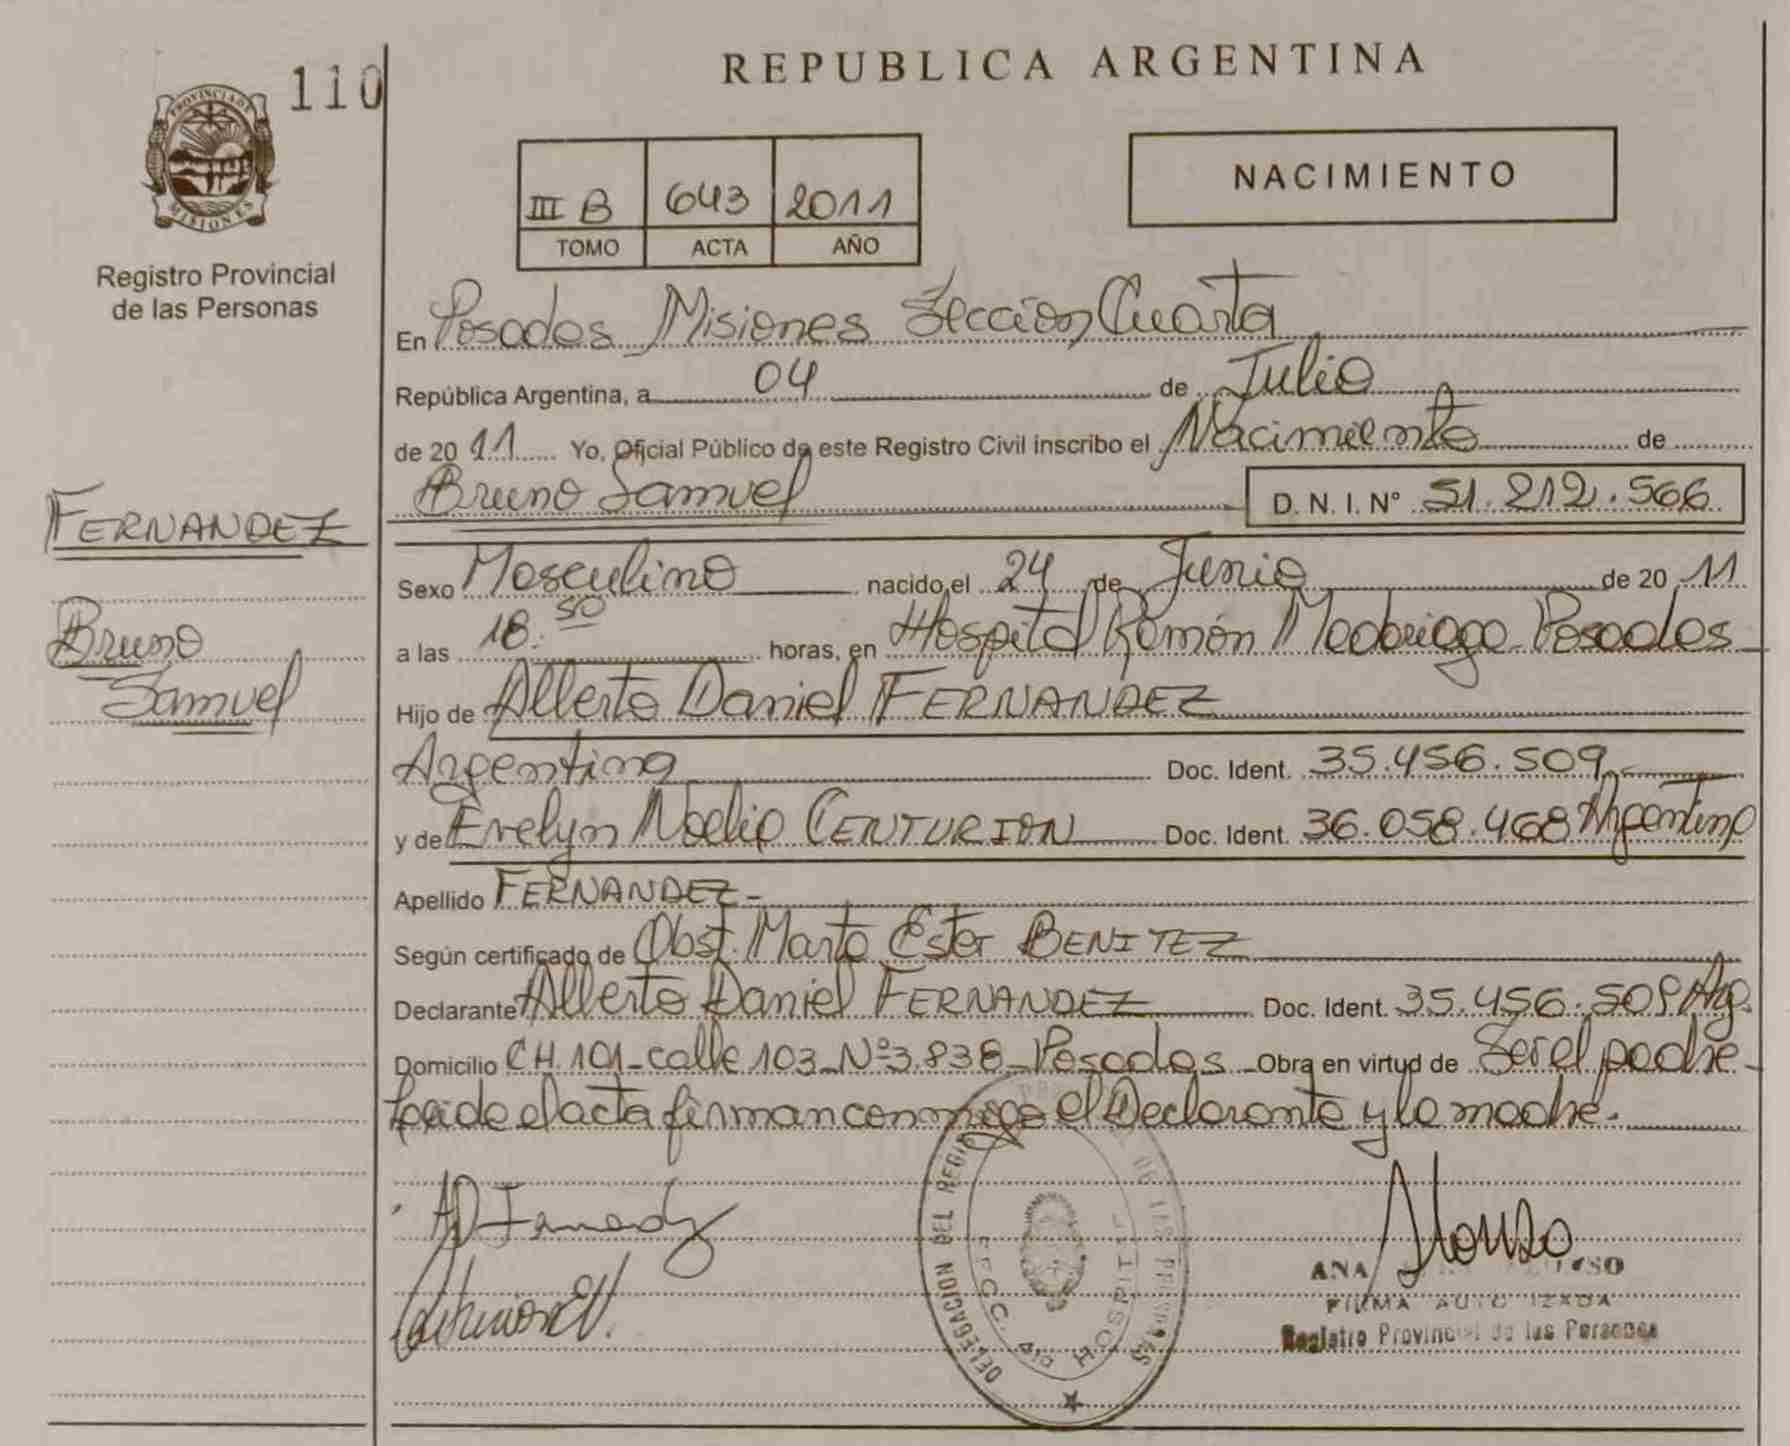 110
REPUBLICA ARGENTINA
PROVINCIA DE MISIONES
Registro Provincial
de las Personas
III B 643 2011
TOMO ACTA AÑO
NACIMIENTO
En Posadas Misiones Sección Cuarta
República Argentina, a 04 de Julio
de 2011 Yo, Oficial Público de este Registro Civil inscribo el Nacimiento de
Bruno Samuel D. N. I. N° 51.212.566
FERNANDEZ
Bruno
Samuel
Sexo Masculino nacido el 24 de Junio de 2011
a las 18:50 horas, en Hospital Ramón Madariaga - Posadas
Hijo de Alberto Daniel FERNANDEZ
Argentina Doc. Ident. 35.456.509
y de Evelyn Noelia CENTURION Doc. Ident. 36.058.468 Argentina
Apellido FERNANDEZ-
Según certificado de Obst. Marta Ester BENITEZ
Declarante Alberto Daniel FERNANDEZ Doc. Ident. 35.456.509 Arg.
Domicilio CH. 101 - calle 103 - Nº 3.838 - Posadas - Obra en virtud de Ser el padre -
Leida el acta firman conmigo el Declarante y la madre.
DELEGACION DEL REGI DE LAS PERSONAS
SECC. 4ta HOSPITAL
Alonzo
ANA
FIRMA AUTORIZADA
Registro Provincial de las Personas